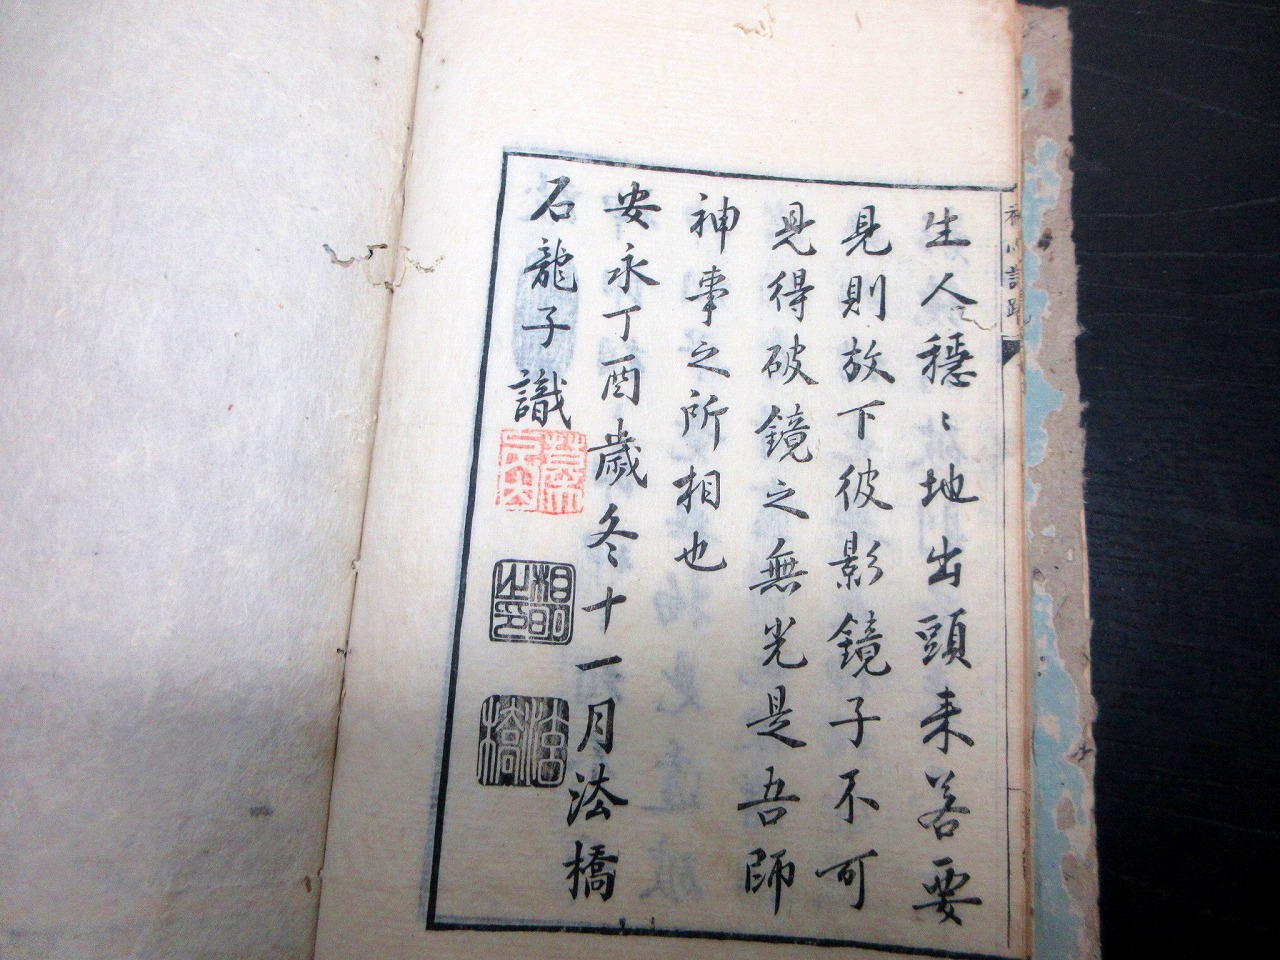 生人穏〻地出頭来若要
見則放下彼影鏡子不可
見得破鏡之無光是吾師
神事之所相也
安永丁酉歳冬十一月法橋
石龍子識
相明之印
法橋